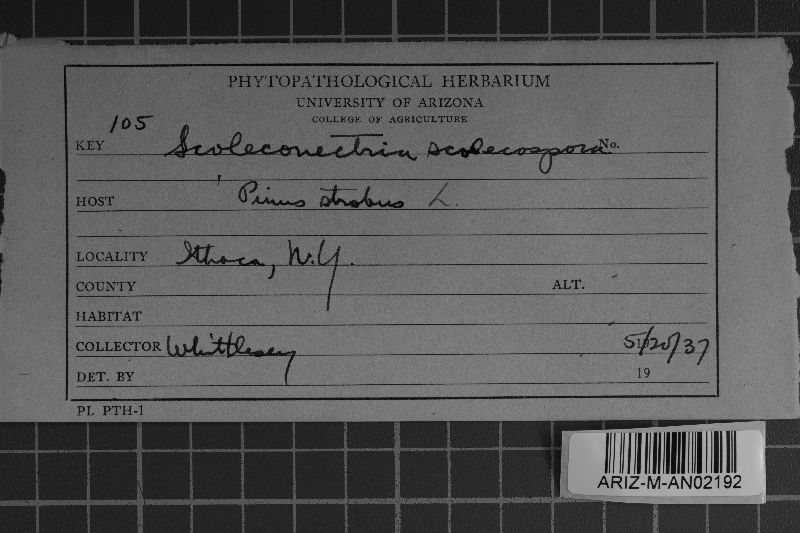 PHYTOPATHOLOGICAL HERBARIUM
UNIVERSITY OF ARIZONA
COLLEGE OF AGRICULTURE
105
KEY Scoleconectria scolecospora No.
HOST Pinus strobus L.
LOCALITY Ithaca, N.Y.
COUNTY ALT.
HABITAT
COLLECTOR Whittlesey 5/20/37
DET. BY 19
PL PTH-1
ARIZ-M-AN02192